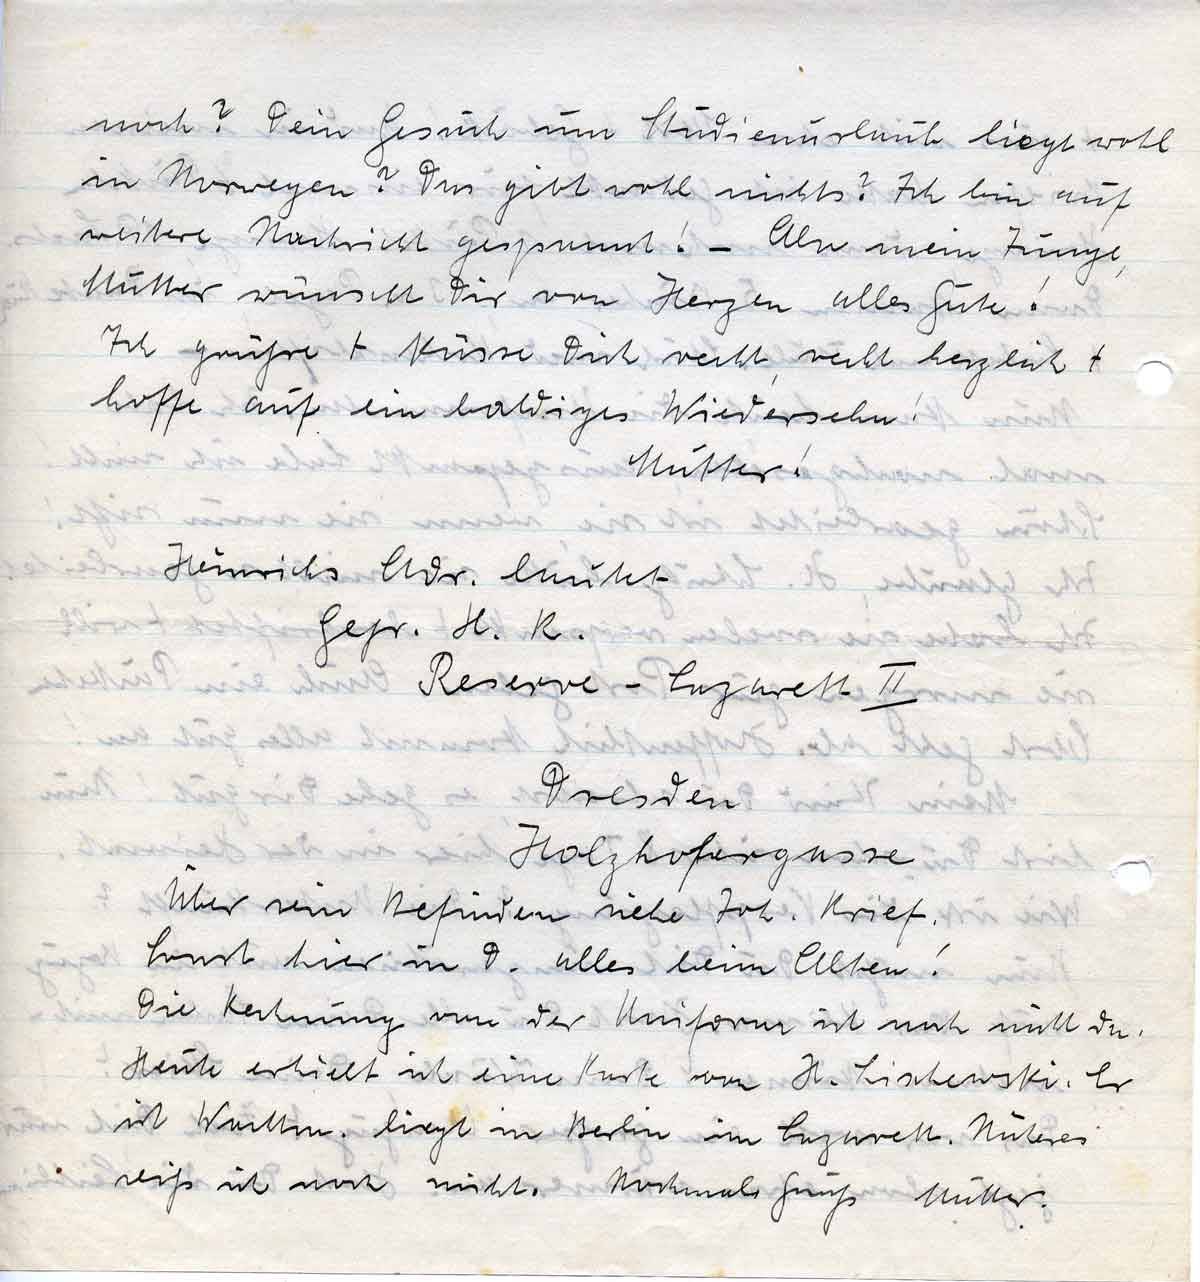 noch? Dein Gesuch um Studienurlaub liegt wohl
in Norwegen? Das gibt wohl nichts? Ich bin auf
weitere Nachricht gespannt! – Also mein Junge,
Mutter wünscht Dir von Herzen alles Gute!
Ich grüße + küsse Dich recht, recht herzlich +
hoffe auf ein baldiges Wiedersehn!
Mutter!
Heinrichs Adr. lautet
Gefr. H. K.
Reserve – Lazarett II
Dresden
Holzhofergasse
Über sein Befinden siehe Joh. Brief.
Sonst hier in D. alles beim Alten!
Die Rechnung von der Uniform ist noch nicht da.
Heute erhielt ich eine Karte von H. Lischewski. Er
ist Wachtm. liegt in Berlin im Lazarett. Näheres
weiß ich noch nicht. Nochmals Gruß Mutter.